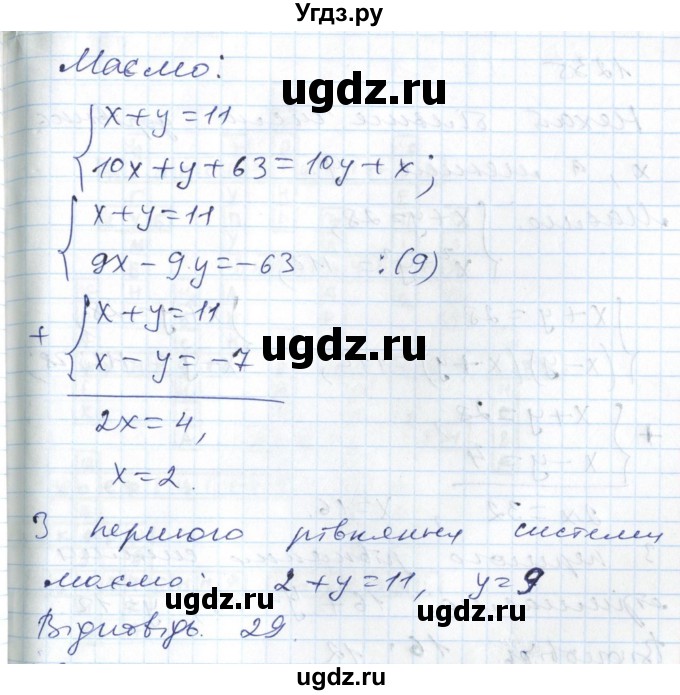 Угдз.ру
Маємо:
ugdz.ru
x+y=11
10x+y+63=10y+x;
ugdz.ru
x+y=11
9x-9y=-63 :(9)
+ x+y=11
x-y=-7
ugdz.ru
2x=4,
x=2.
ugdz.ru
З першого рівняння системи
маємо: 2+y=11, y=9
ugdz.ru
Відповідь. 29.
ugdz.ru